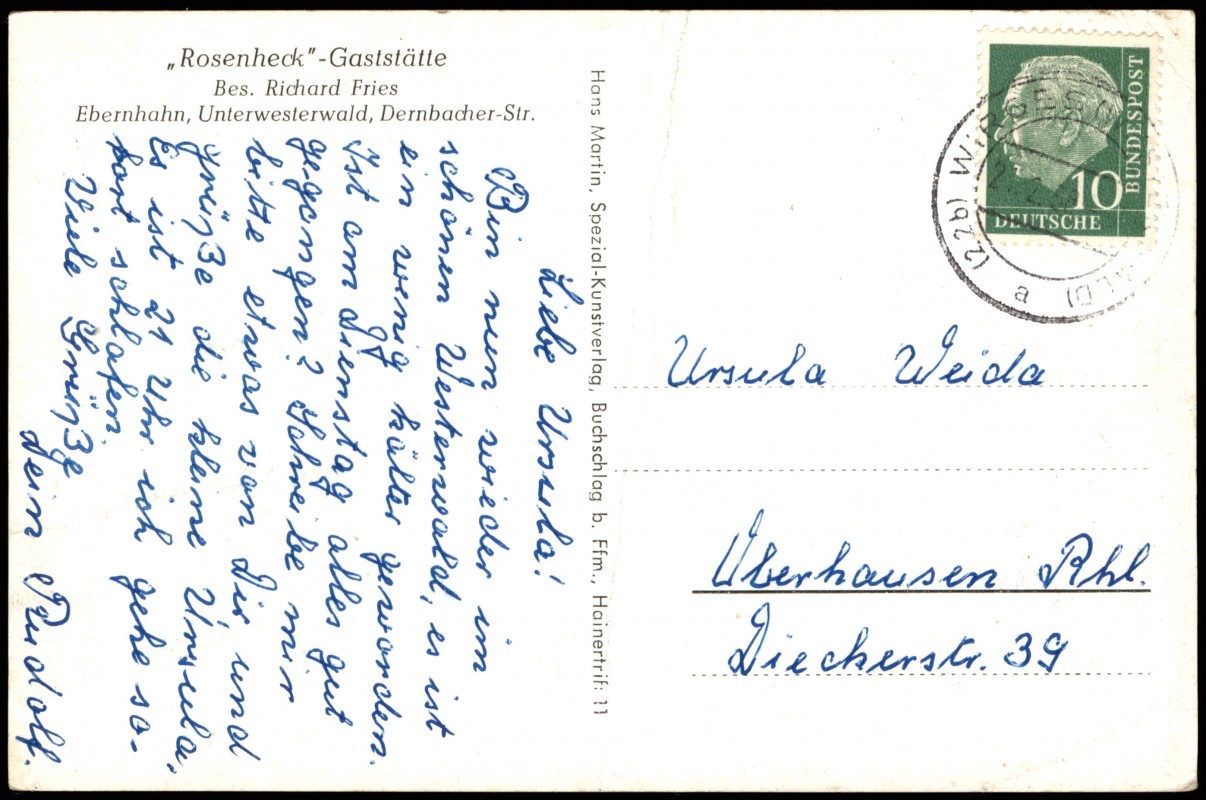 „Rosenheck"-Gaststätte
Bes. Richard Fries
Ebernhahn, Unterwesterwald, Dernbacher-Str.
Liebe Ursula!
Bin nun wieder im
schönen Westerwald, es ist
ein wenig kälter geworden.
Ist am Dienstag alles gut
gegangen? Schreibe mir
bitte etwas von Dir und
grüße die kleine Ursula.
Es ist 21 Uhr ich gehe so-
fort schlafen.
Viele Grüße
Dein Rudolf.
Hans Martin, Spezial-Kunstverlag, Buchschlag b. Ffm., Hainertrift 11
DEUTSCHE
BUNDESPOST
10
(22a) WIRGES
a
Ursula Weida
Oberhausen Rhl.
Dieckerstr. 39